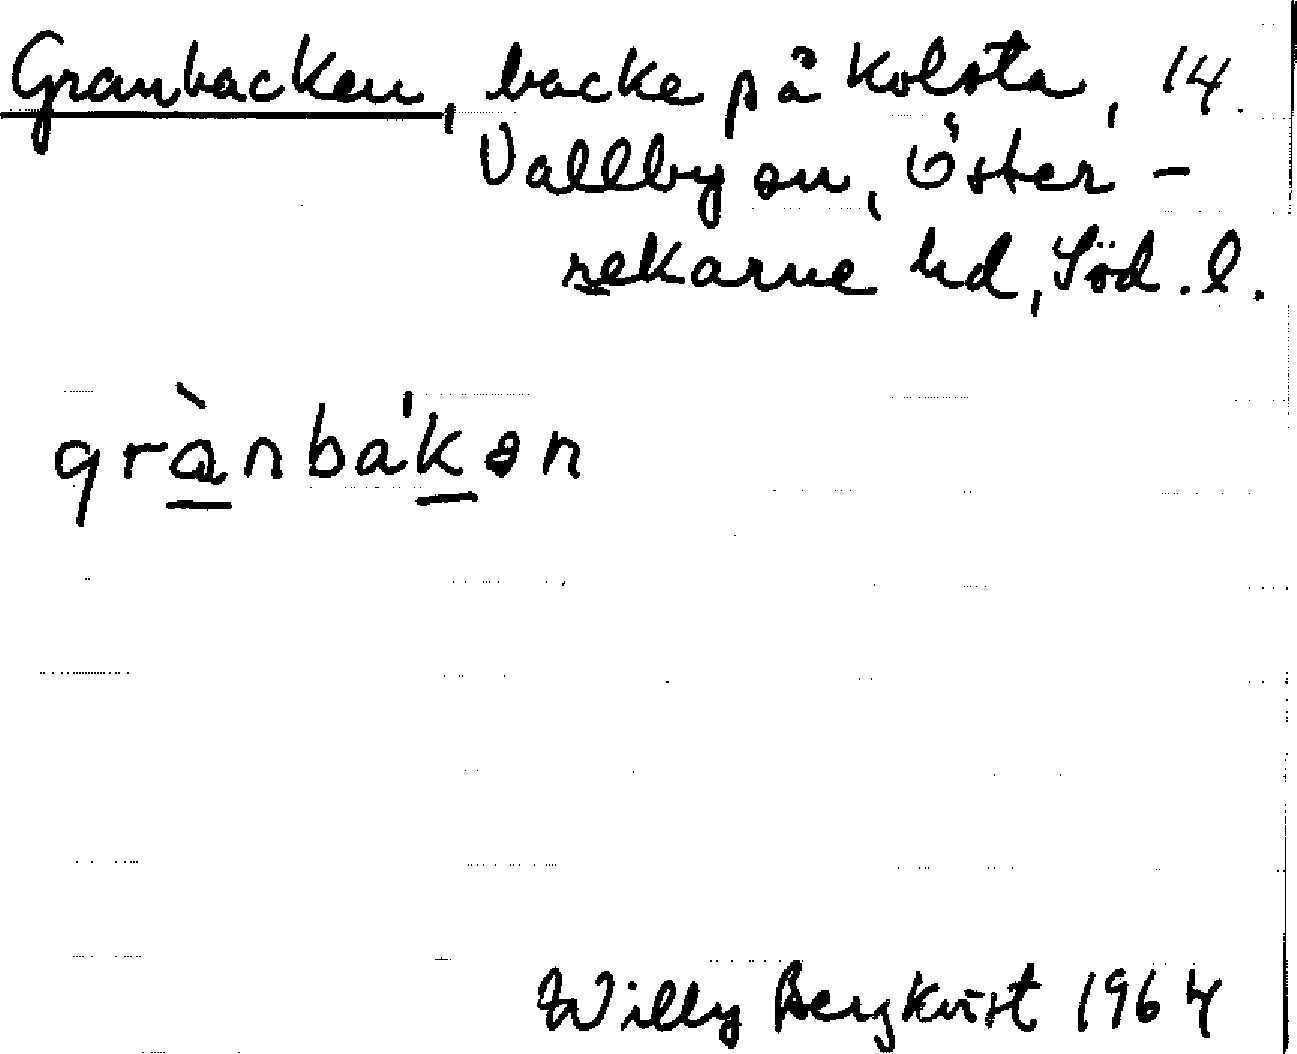 Granbacken, backe på Kolsta, 14.
Vallby sn, Öster-
rekarne hd, Söd. l.
grànbaˈkən
Willy Bergkvist 1964